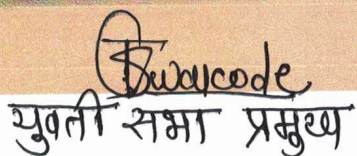 Bwarcode
युवती सभा प्रमुख